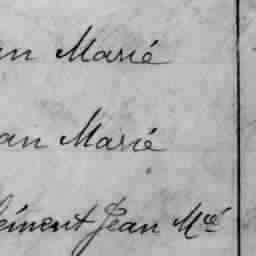 an Marié
an Marié
lément Jean Mcé